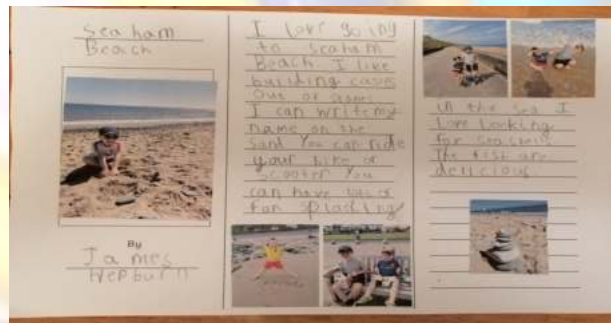 Seaham
Beach
By
James
Hepburn
I love going
to Seaham
Beach I like
building
out of
I can write my
name on the
sand You can ride
your bike or
scooter You
can have lots of
fun
in the sea I
love looking
for sea shells
The fish are
delicious